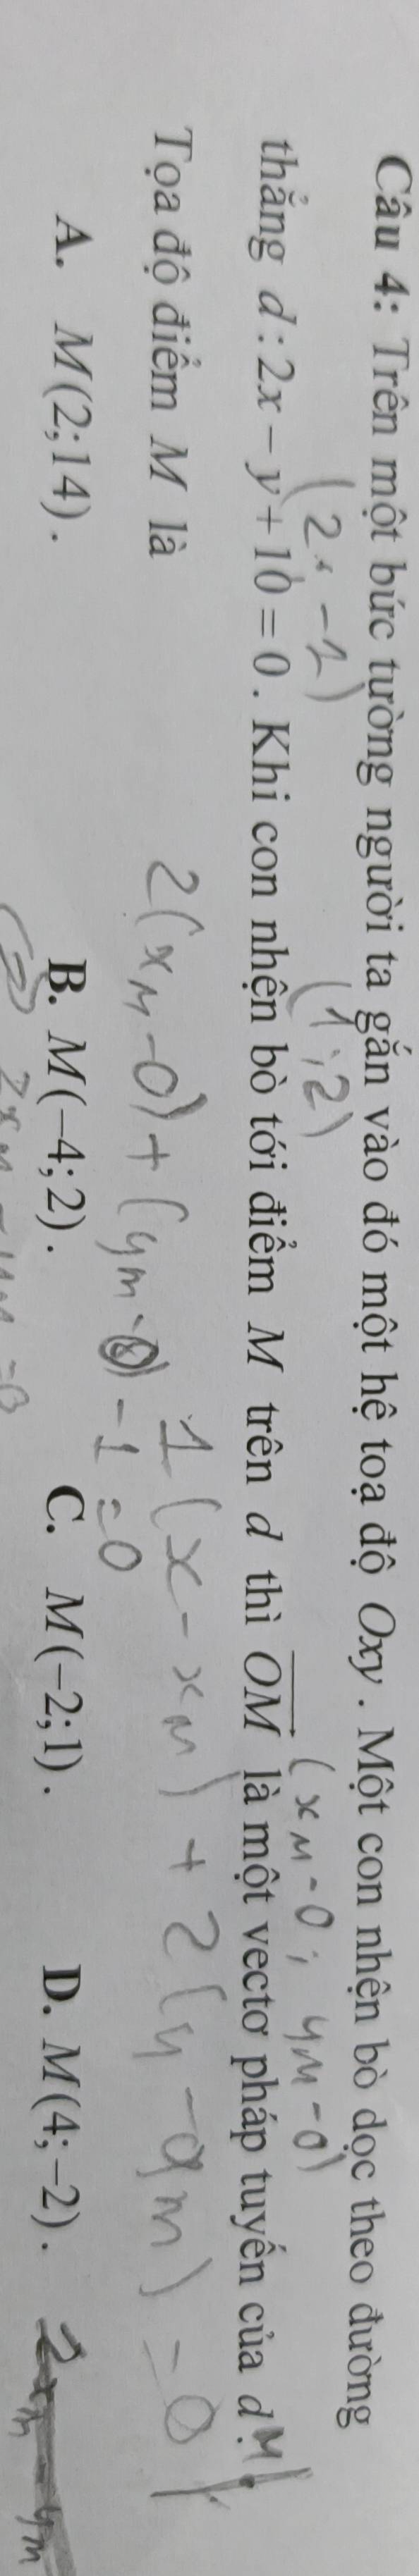 Câu 4: Trên một bức tường người ta gắn vào đó một hệ toạ độ Oxy. Một con nhện bò dọc theo đường
(2; -1) (1; 2) (x_M - 0; y_M - 0)
thẳng d: 2x - y + 10 = 0. Khi con nhện bò tới điểm M trên d thì \overrightarrow{OM} là một vectơ pháp tuyến của d.
Tọa độ điểm M là
1(x - x_M) + 2(y - y_M) = 0
2(x_M - 0) + (y_M - 0) - 1 = 0
A. M(2;14). B. M(-4;2). C. M(-2;1). D. M(4;-2).